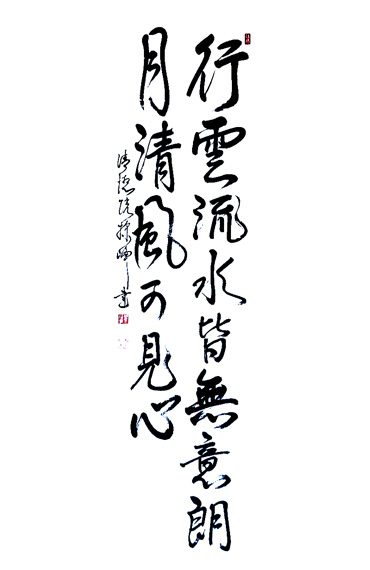 行雲流水皆無意朗
月清風可見心